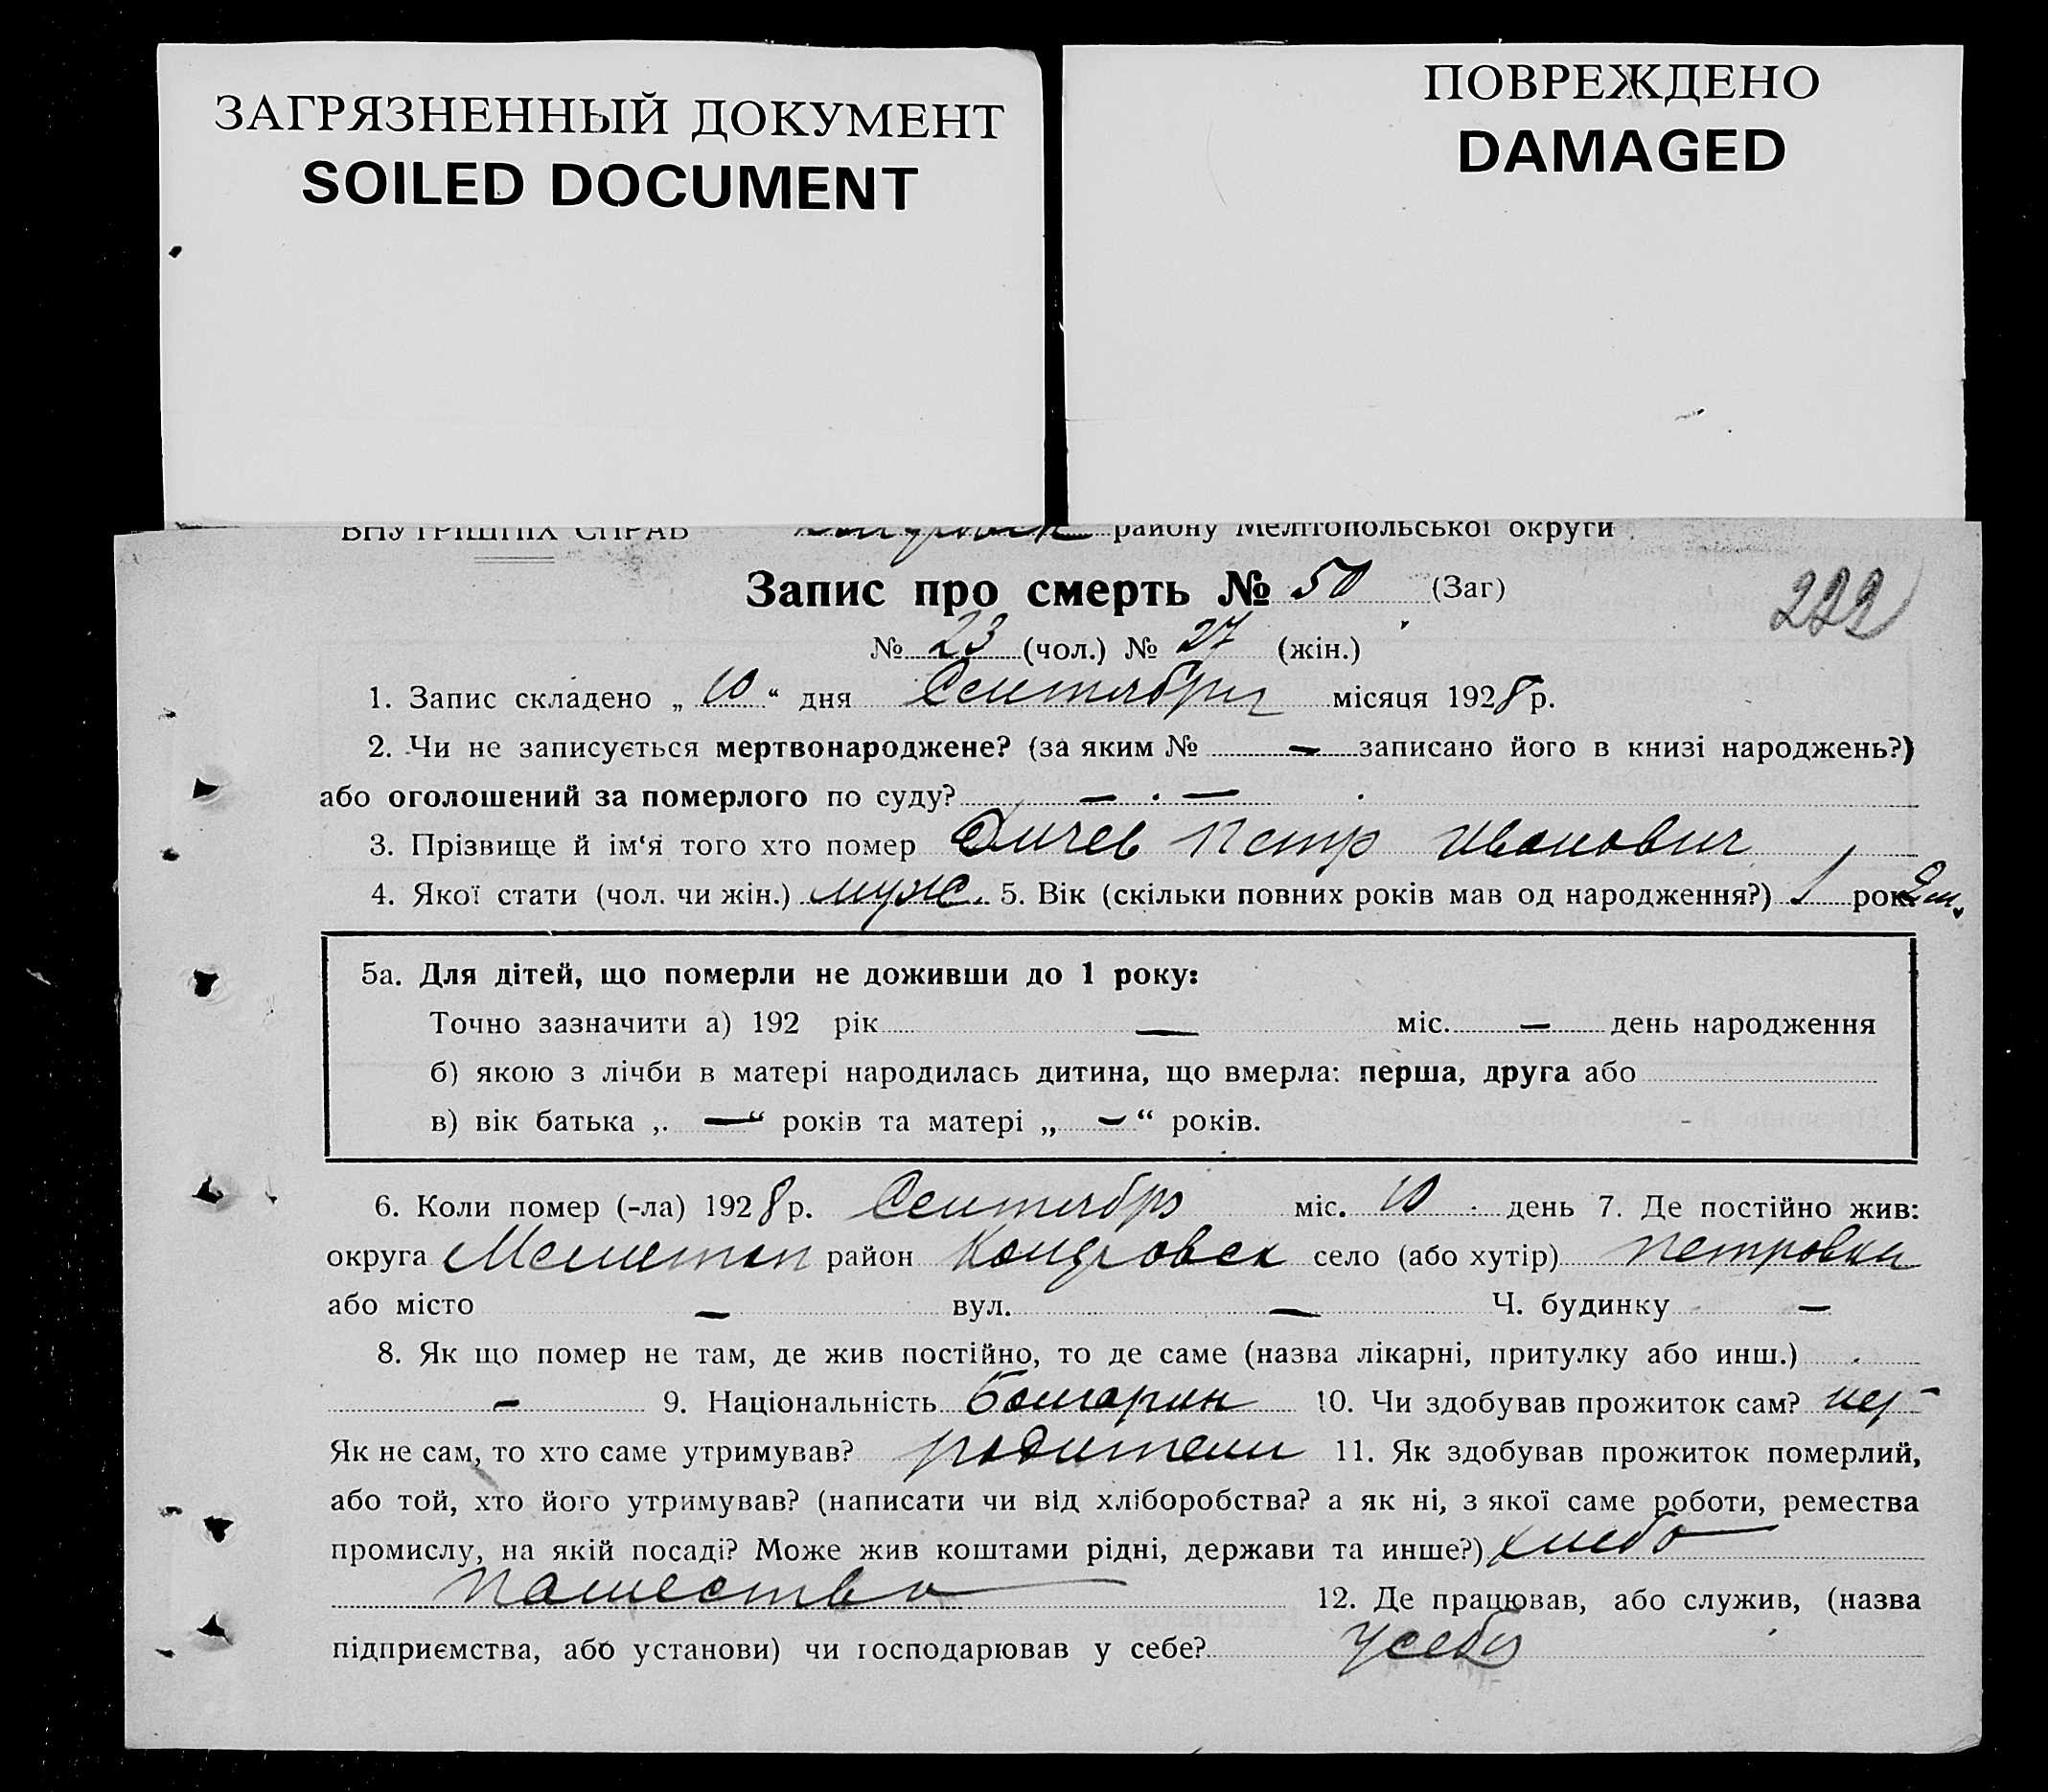 ЗАГРЯЗНЕННЫЙ ДОКУМЕНТ
SOILED DOCUMENT
ПОВРЕЖДЕНО
DAMAGED
ВНУТРІШНІХ СПРАВ району Мелітопольської округи
Запис про смерть № 50 (Заг)
222
№ 23 (чол.) № 27 (жін.)
1. Запис складено „ 10 “ дня Сентября місяця 1928 р.
2. Чи не записується мертвонароджене? (за яким № — записано його в книзі народжень?)
або оголошений за померлого по суду? — . —
3. Прізвище й ім‘я того хто помер Дичев Петр Иванович
4. Якої стати (чол. чи жін.) муж. 5. Вік (скільки повних років мав од народження?) 1 рок. 2 м.
5а. Для дітей, що померли не доживши до 1 року:
Точно зазначити а) 192 рік — міс. — день народження
б) якою з лічби в матері народилась дитина, що вмерла: перша, друга або
в) вік батька „ — “ років та матері „ — “ років.
6. Коли помер (-ла) 1928 р. Сентябрь міс. 10 день 7. Де постійно жив:
округа Мелитоп район село (або хутір) Петровка
або місто — вул. — Ч. будинку —
8. Як що помер не там, де жив постійно, то де саме (назва лікарні, притулку або инш.)
— 9. Національність Болгарин 10. Чи здобував прожиток сам?
Як не сам, то хто саме утримував? родители 11. Як здобував прожиток померлий,
або той, хто його утримував? (написати чи від хліборобства? а як ні, з якої саме роботи, ремества
промислу, на якій посаді? Може жив коштами рідні, держави та инше?) хлебо
пашество 12. Де працював, або служив, (назва
підприємства, або установи) чи господарював у себе? у себя